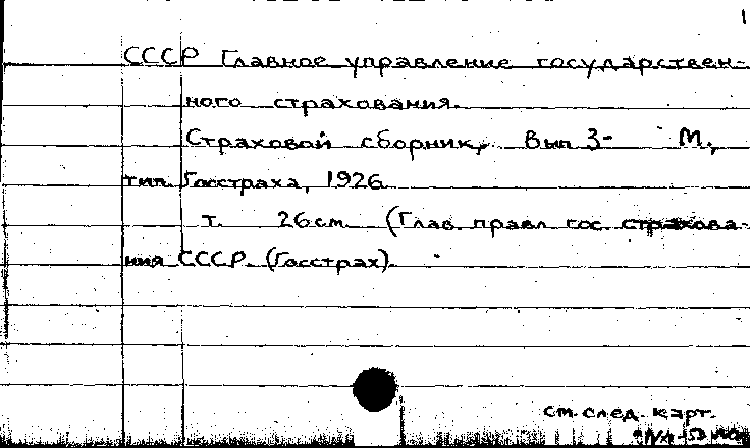 1
СССР Главное управление государствен-
ного страхования.
Страховой сборник, Вып 3- М.,
тип. Госстраха, 1926.
т. 26 см. (Глав. правл. гос. страхова-
ния СССР. (Госстрах).
см. след. карт.